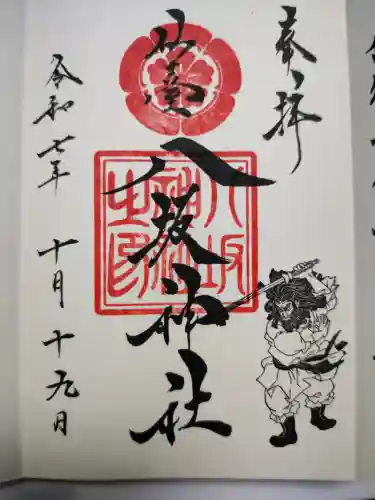 奉拝
仙臺
八坂神社
八坂
神社
之印
令和七年 十月十九日